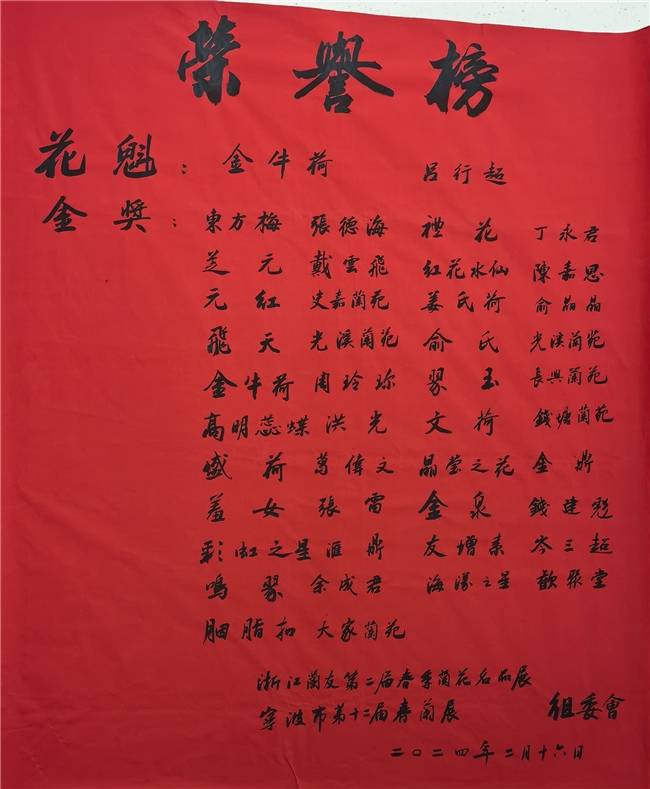 榮譽榜
花魁：金牛荷 呂行超
金獎：東方梅 張德海 禮花 丁永君
芝元 戴雲飛 紅花水仙 陳嘉思
元紅 史嘉蘭苑 姜氏荷 俞晶晶
飛天 光溪蘭苑 俞氏 光溪蘭苑
金牛荷 周玲珍 翠玉 長興蘭苑
高明蕊蝶 洪光 文荷 錢塘蘭苑
盛荷 葛偉文 晶瑩之花 金鼎
羞女 張雷 金泉 錢建
彩虹之星 匯鼎 友增素 岑三超
鳴翠 余成君 海漾之星 歡聚堂
胭脂扣 大家蘭苑
浙江蘭友第二届春季蘭花名品展
寧波市第十二届春蘭展 組委會
二〇二四年二月十六日